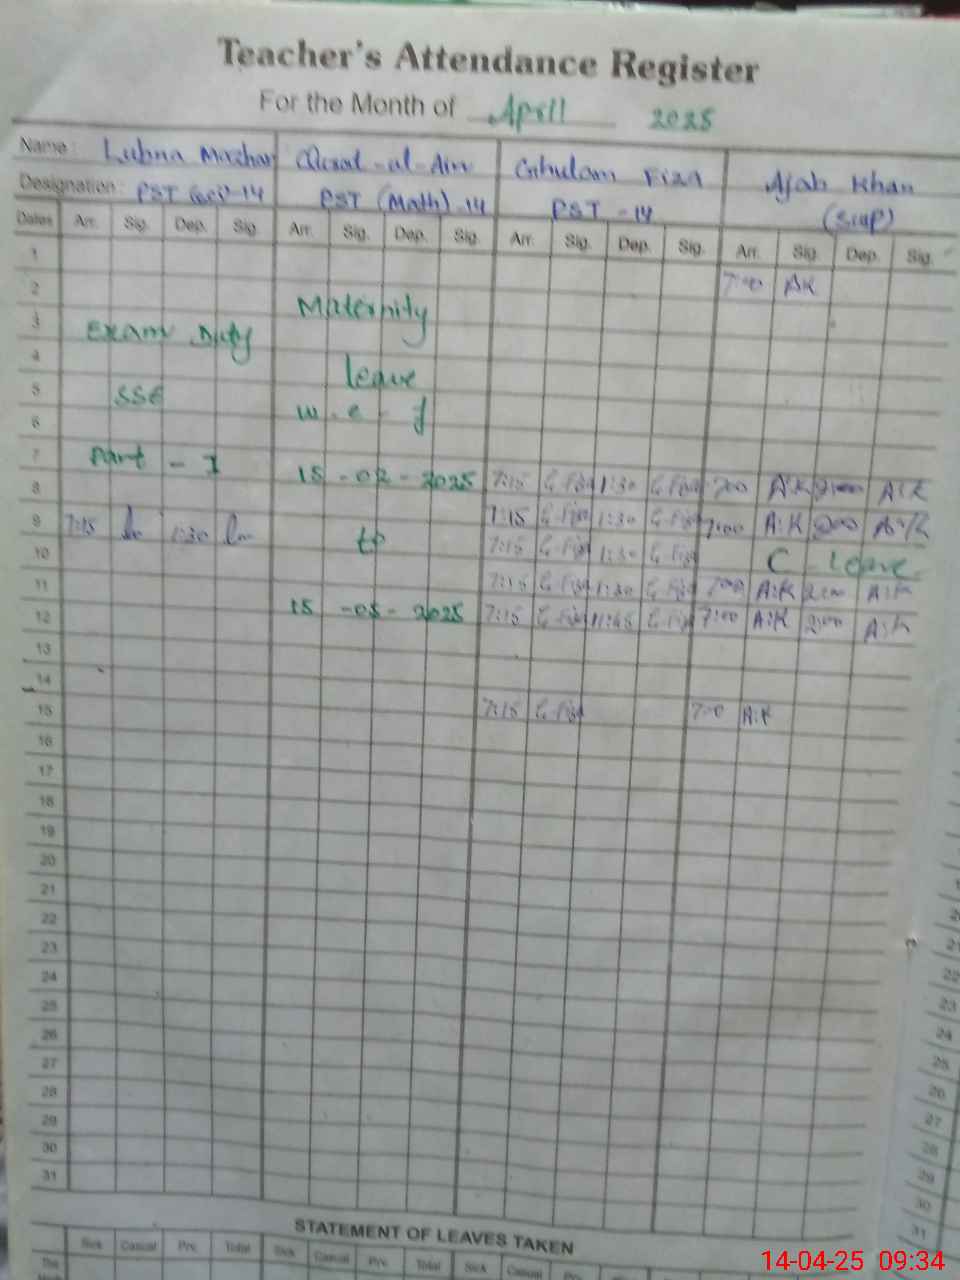 Teacher's Attendance Register
For the Month of April 2025
Name: Lubna Mazhar Qurat-al-Ain Ghulam Fiza Ajab Khan
Designation: PST -14 PST (Math)-14 PST -14
Dates Arr. Sig. Dep. Sig. Arr. Sig. Dep. Sig. Arr. Sig. Dep. Sig. Arr. Sig. Dep. Sig.
1
2 7:00 AK
Maternity
3 Exam Duty
4 leave
5 SSC
6 w.e.f
7 Part - I
8 15-02-2025 7:15 G. Fiza 1:30 G. Fiza 700 A.K 2:00 A.K
9 7:15 1:30 7:15 G. Fiza 1:30 G. Fiza 7:00 A:K 2:00 A:K
10 to 7:15 G. Fiza 1:30 G. Fiza C - Leave
11 7:15 G. Fiza 1:30 G. Fiza 700 A:K 2:00 A:K
12 15-05-2025 7:15 G. Fiza 11:45 G. Fiza 7:00 A:K 2:00 A:K
13
14
15 7:15 G. Fiza 7:00 A:K
16
17
18
19
20
21
22
23
24
25
26
27
28
29
30
31
STATEMENT OF LEAVES TAKEN
Sick Casual Prv. Total Sick Casual Prv. Total Sick Casual
This
14-04-25 09:34